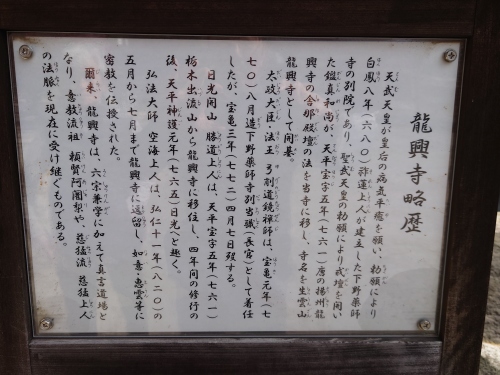 龍興寺略歴
天武天皇が皇后の病気平癒を願い、勅願により
白鳳八年(六八〇)祚蓮上人が建立した下野薬師
寺の別院であり、聖武天皇の勅願により戒壇を開い
た鑑真和尚が、天平宝字五年(七六一)唐の揚州龍
興寺の舎那殿壇の法を当寺に移し、寺名を生雲山
龍興寺として開基。
太政大臣法王、弓削道鏡禅師は、宝亀元年(七
七〇)八月造下野薬師寺別当職(長官)として着任
したが、宝亀三年(七七二)四月七日歿する。
日光開山 勝道上人は、天平宝字五年(七六一)
栃木出流山から龍興寺に移住し、四年間の修行の
後、天平神護元年(七六五)日光へと趣く。
弘法大師 空海上人は、弘仁十一年(八二〇)の
五月から七月まで龍興寺に逗留し、如意・恵雲等に
密教を伝授された。
爾来、龍興寺は、六宗兼学に加えて真言道場と
なり、意教流祖 頼賢阿闍梨や、慈猛流 慈猛上人
の法脈を現在に受け継ぐものである。